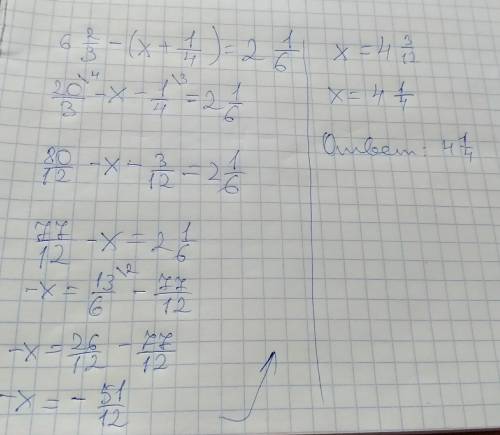 6 2/3 - (x + 1/4) = 2 1/6
20/3 \4 - x - 1/4 \3 = 2 1/6
80/12 - x - 3/12 = 2 1/6
77/12 - x = 2 1/6
-x = 13/6 \2 - 77/12
-x = 26/12 - 77/12
-x = - 51/12
x = 4 3/12
x = 4 1/4
Ответ: 4 1/4